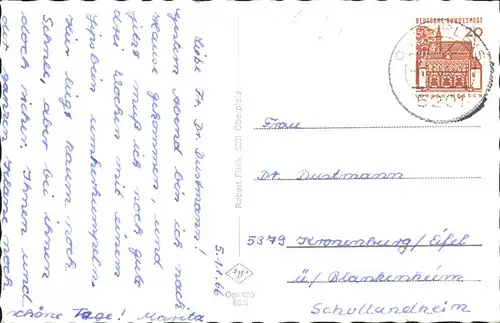 5.1.66
Liebe Fr. Dr. Dustmann!
Gestern Abend bin ich nach
Hause gekommen, und
jetzt muß ich noch gute
drei Wochen mit einem
Gipsbein umherhumpeln.
Hier liegt kaum noch
Schnee, aber bei ihnen
doch sicher. Ihnen und
der ganzen Klasse noch
schöne Tage! Marita
Robert Fünk, 5201 Oberpleis
DEUTSCHE BUNDESPOST
20
LORSCH/HESSEN
5201
Frau
Dr. Dustmann
5379 Kronenburg/Eifel
ü/Blankenheim
Schullandheim